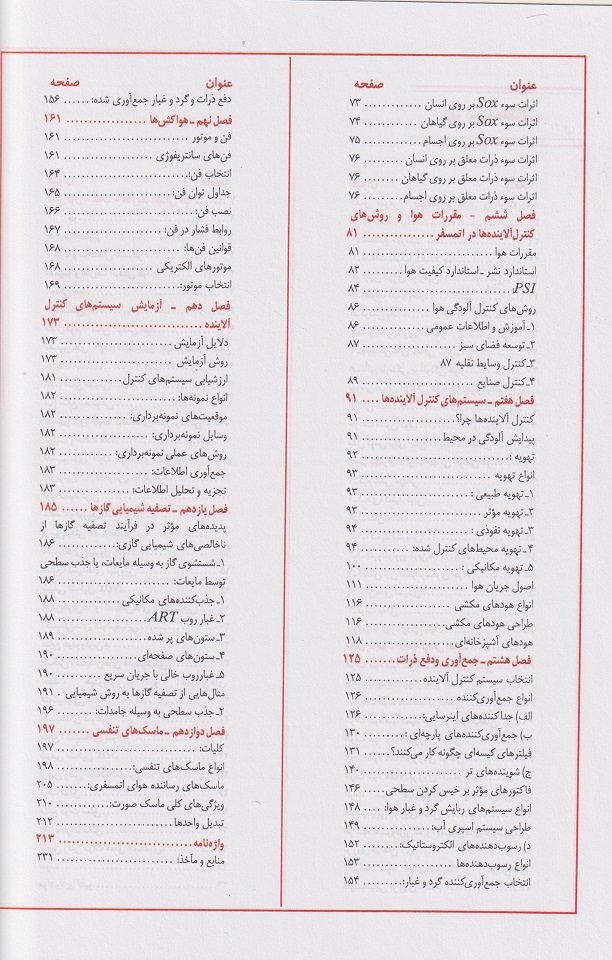 عنوان صفحه
اثرات سوء Sox بر روی انسان ............. ۷۳
اثرات سوء Sox بر روی گیاهان ............ ۷۴
اثرات سوء Sox بر روی اجسام ............. ۷۵
اثرات سوء ذرات معلق بر روی انسان ......... ۷۶
اثرات سوء ذرات معلق بر روی گیاهان ........ ۷۶
اثرات سوء ذرات معلق بر روی اجسام ......... ۷۶
فصل ششم - مقررات هوا و روش‌های
کنترل‌آلاینده‌ها در اتمسفر ................ ۸۱
مقررات هوا ........................... ۸۱
استاندارد نشر ـ استاندارد کیفیت هوا ........ ۸۲
PSI: ................................ ۸۴
روش‌های کنترل آلودگی هوا ............... ۸۶
۱ـ آموزش و اطلاعات عمومی .............. ۸۶
۲ـ توسعه فضای سبز .................... ۸۷
۳ـ کنترل وسایط نقلیه ۸۷
۴ـ کنترل صنایع ........................ ۸۹
فصل هفتم ـ سیستم‌های کنترل آلاینده‌ها .... ۹۱
کنترل آلاینده‌ها چرا؟ ................... ۹۱
پیدایش آلودگی در محیط ................. ۹۱
تهویه : .............................. ۹۲
انواع تهویه ........................... ۹۳
۱ـ تهویه طبیعی : ...................... ۹۳
۲ـ تهویه مؤثر ......................... ۹۳
۳ـ تهویه نفوذی : ...................... ۹۴
۴ـ تهویه محیط‌های کنترل شده: ........... ۹۴
۵ـ تهویه مکانیکی : .................... ۱۰۰
اصول جریان هوا ....................... ۱۱۱
انواع هودهای مکشی .................... ۱۱۶
طراحی هودهای مکشی ................... ۱۱۶
هودهای آشپزخانه‌ای .................... ۱۱۸
فصل هشتم ـ جمع‌آوری ودفع ذرات ....... ۱۲۵
انتخاب سیستم کنترل آلاینده .............. ۱۲۵
انواع جمع‌آوری کننده ................... ۱۲۶
الف) جداکننده‌های اینرسایی: .............. ۱۲۶
ب) جمع‌آوری‌کننده‌های پارچه‌ای : ......... ۱۳۰
فیلترهای کیسه‌ای چگونه کار می‌کنند؟ ....... ۱۳۱
ج) شوینده‌های تر ...................... ۱۴۰
فاکتورهای مؤثر بر خیس کردن سطحی ...... ۱۴۶
انواع سیستم‌های ربایش گرد و غبار هوا: .... ۱۴۸
طراحی سیستم اسپری آب: ................ ۱۴۹
د) رسوب‌دهنده‌های الکتروستاتیک: ......... ۱۵۲
انواع رسوب‌دهنده‌ها .................... ۱۵۳
انتخاب جمع‌آوری‌کننده گرد و غبار: ......... ۱۵۴
عنوان صفحه
دفع ذرات و گرد و غبار جمع‌آوری شده: ...... ۱۵۶
فصل نهم ـ هواکش‌ها .................... ۱۶۱
فن و موتور ........................... ۱۶۱
فن‌های سانتریفوژی ..................... ۱۶۱
انتخاب فن: ........................... ۱۶۴
جداول توان فن: ....................... ۱۶۵
نصب فن: ............................ ۱۶۶
روابط فشار در فن: ..................... ۱۶۷
قوانین فن‌ها: .......................... ۱۶۸
موتورهای الکتریکی .................... ۱۶۸
انتخاب موتور: ........................ ۱۶۹
فصل دهم ـ آزمایش سیستم‌های کنترل
آلاینده .............................. ۱۷۳
دلایل آزمایش ......................... ۱۷۳
روش آزمایش ......................... ۱۷۳
ارزشیابی سیستم‌های کنترل ............... ۱۸۱
انواع نمونه‌ها: ......................... ۱۸۲
موقعیت‌های نمونه‌برداری: ................ ۱۸۲
وسایل نمونه‌برداری: .................... ۱۸۲
روش‌های عملی نمونه‌برداری: .............. ۱۸۲
جمع‌آوری اطلاعات: .................... ۱۸۳
تجزیه و تحلیل اطلاعات: ................. ۱۸۳
فصل یازدهم ـ تصفیه شیمیایی گازها ...... ۱۸۵
پدیده‌های مؤثر در فرآیند تصفیه گازها از
ناخالصی‌های شیمیایی گازی: .............. ۱۸۶
۱ـ شستشوی گاز به وسیله مایعات، یا جذب سطحی
توسط مایعات: ........................ ۱۸۶
۱ـ جذب‌کننده‌های مکانیکی .............. ۱۸۸
۲ـ غبار روب ART ..................... ۱۸۸
۳ـ ستون‌های پر شده ................... ۱۸۹
۴ـ ستون‌های صفحه‌ای .................. ۱۹۰
۵ـ غبارروب خالی با جریان سریع .......... ۱۹۰
مثال‌هایی از تصفیه گازها به روش شیمیایی . ۱۹۱
۲ـ جذب سطحی به وسیله جامدات: ......... ۱۹۶
فصل دوازدهم ـ ماسک‌های تنفسی ....... ۱۹۷
کلیات: .............................. ۱۹۷
انواع ماسک‌های تنفسی: ................. ۱۹۸
ماسک‌های رساننده هوای اتمسفری: ........ ۲۰۵
ویژگی‌های کلی ماسک صورت: ............ ۲۱۰
تبدیل واحدها ........................ ۲۱۲
واژه‌نامه ............................. ۲۱۳
منابع و مآخذ: ........................ ۲۳۱